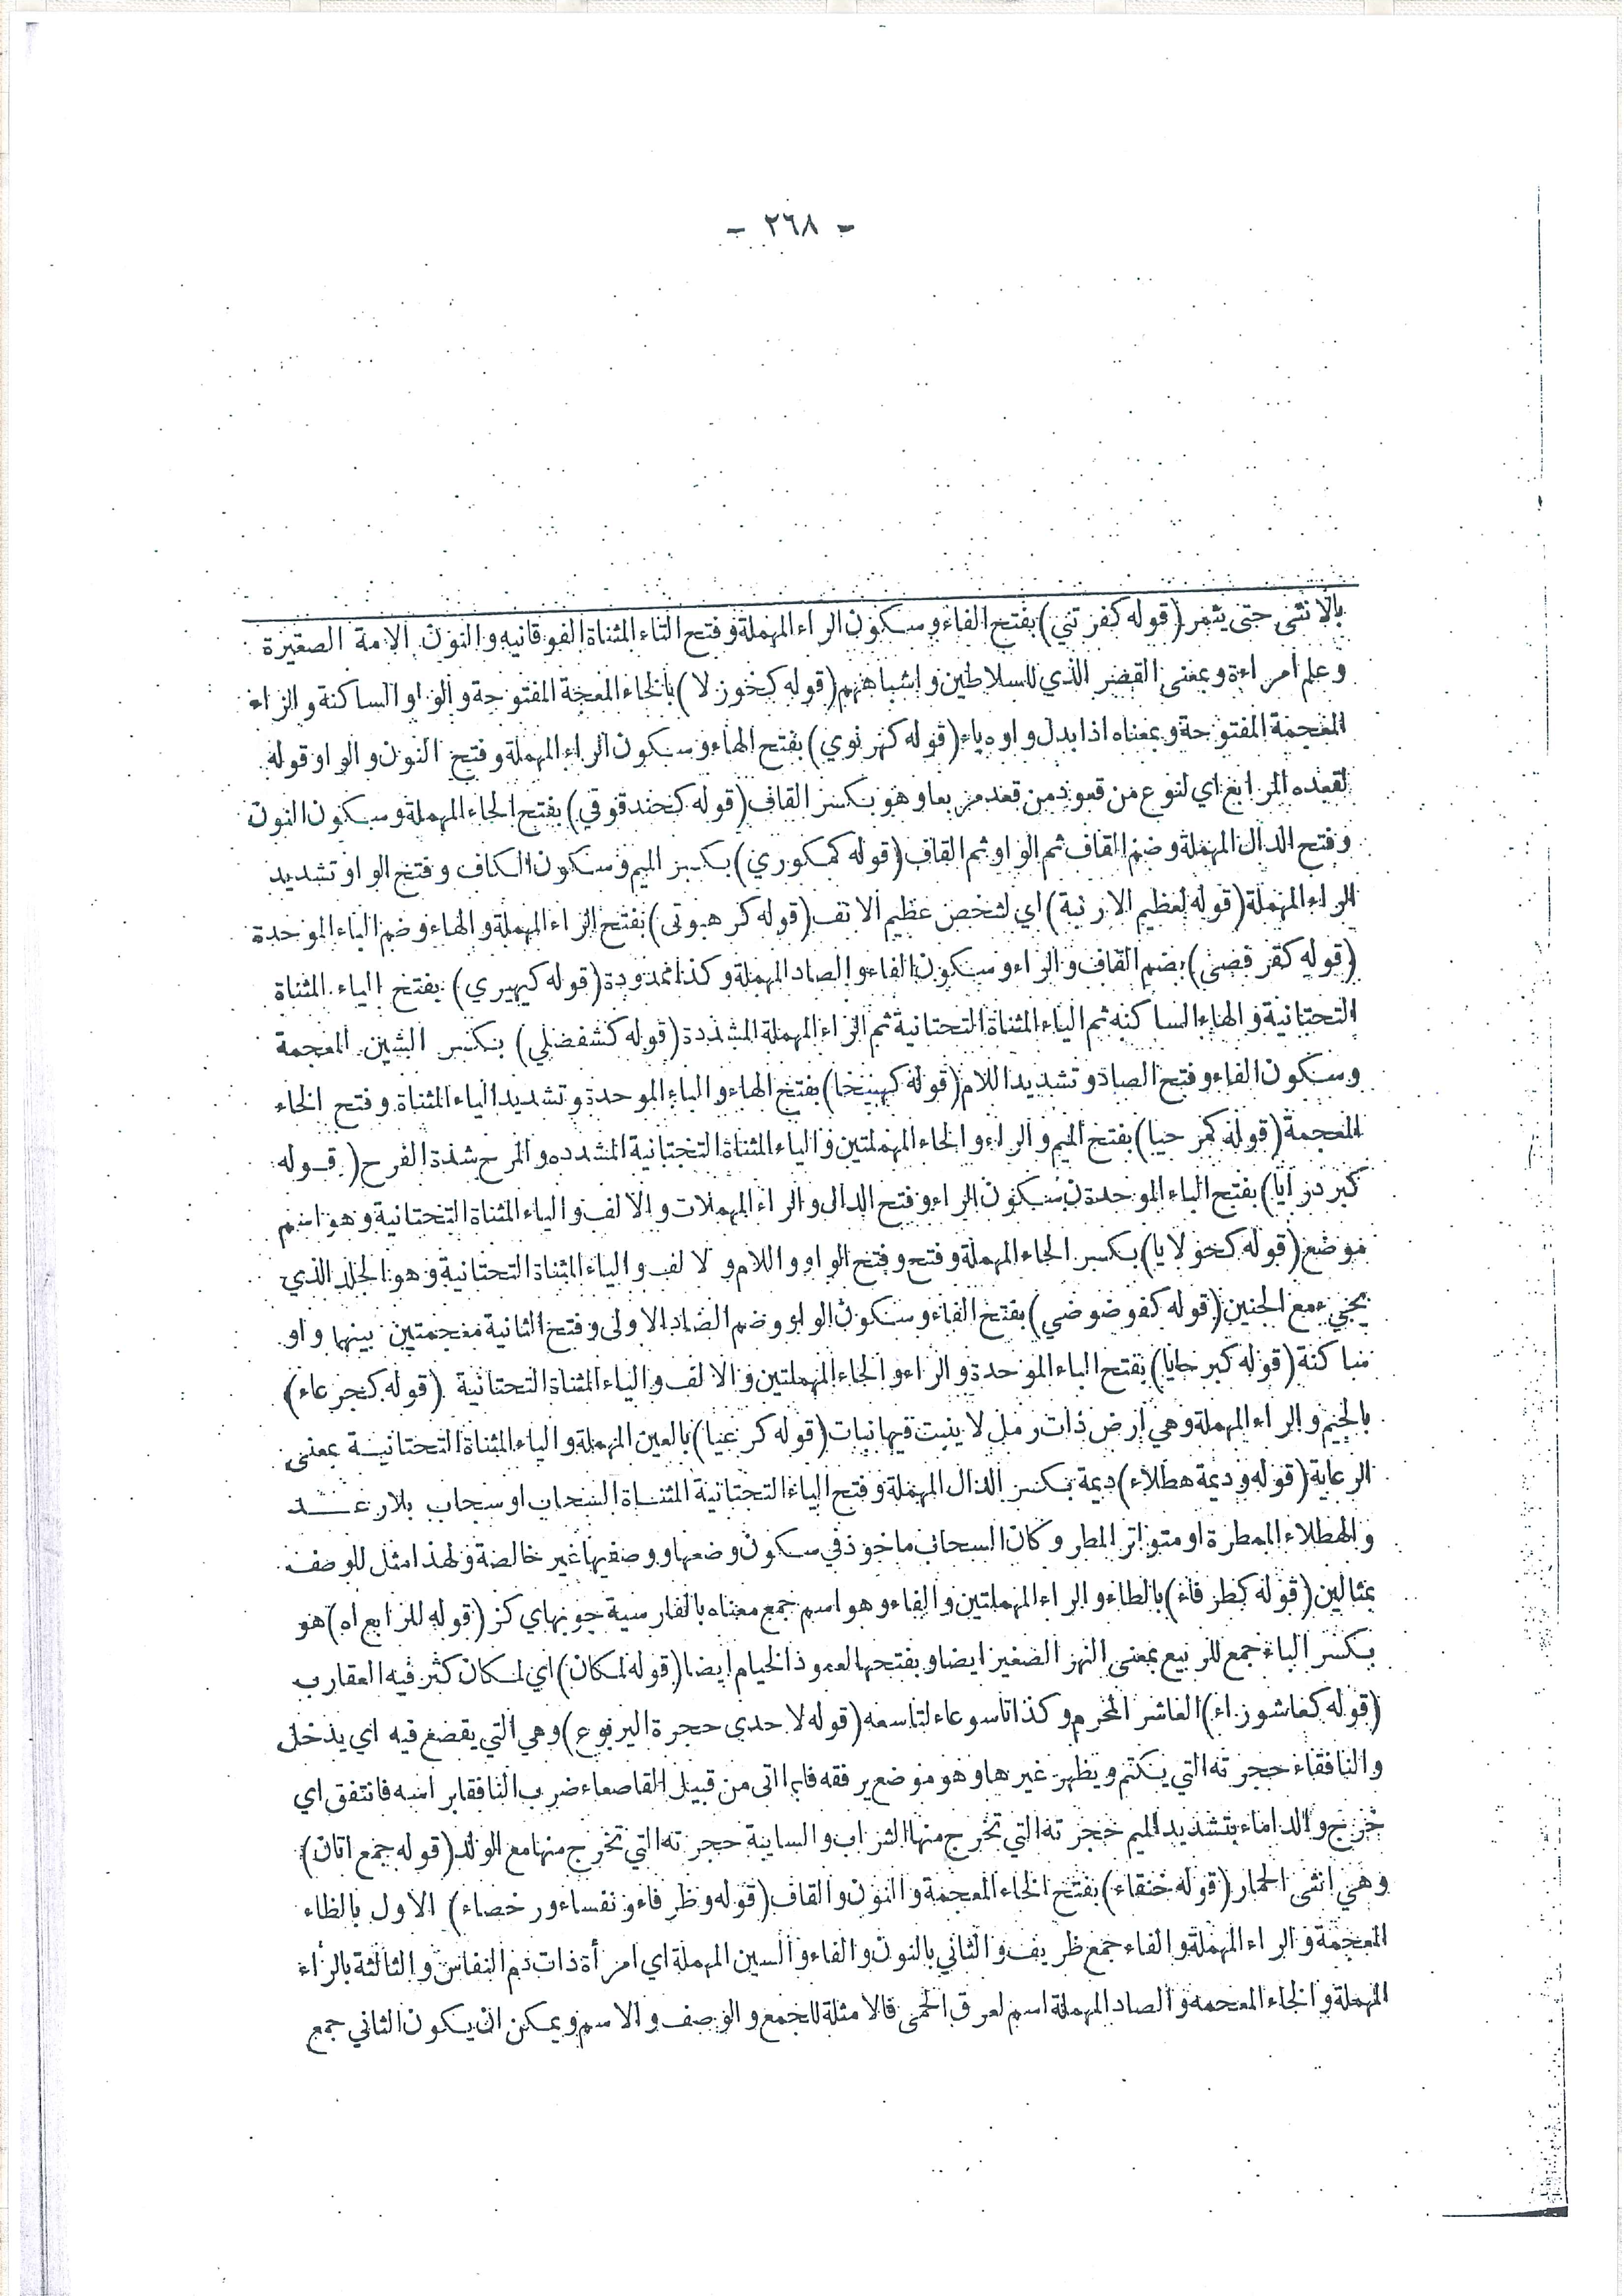 - ٢٦٨ -
بالانثى حتى يثمر (قوله كفرتني) بفتح الفاء وسكون الراء المهملة وفتح التاء المثناة الفوقانيه والنون الامة الصغيرة
وعلم امراءة وبمعنى القصر الذي للسلاطين واشباههم (قوله كخوزلا) بالخاء المعجة المفتوحة والواو الساكنة والزاء
المعجمة المفتوحة وبمعناه اذا بدل واوه ياء (قوله كهرنوي) بفتح الهاء وسكون الراء المهملة وفتح النون والواو قوله
لقعده المرابع اي لنوع من قعود من قعد مربعا وهو بكسر القاف (قوله كحندقوقي) بفتح الحاء المهملة وسكون النون
وفتح الدال المهملة وضم القاف ثم الواو ثم القاف (قوله كمكوري) بكسر الميم وسكون الكاف وفتح الواو وتشديد
الراء المهملة (قوله لعظيم الارنبة) اي لشخص عظيم الانف (قوله كرهبوتى) بفتح الراء المهملة والهاء وضم الباء الموحدة
(قوله كقرفصى) بضم القاف والراء وسكون الفاء والصاد المهملة وكذا ممدودة (قوله كيهيري) بفتح الياء المثناة
التحتانية والهاء الساكنه ثم الياء المثناة التحتانية ثم الراء المهملة المشددة (قوله كشفصلي) بكسر الشين المعجمة
وسكون الفاء وفتح الصاد وتشديد اللام (قوله كهبيخا) بفتح الهاء والباء الموحدة وتشديد الياء المثناة وفتح الخاء
المعجمة (قوله كمرحيا) بفتح الميم والراء والحاء المهملتين والياء المثناة التحتانية المشدده والمرح شدة الفرح (قوله
كبردرايا) بفتح الباء الموحدة وسكون الراء وفتح الدال والراء المهملات والالف والياء المثناة التحتانية وهو اسم
موضع (قوله كحولايا) بكسر الحاء المهملة وفتح وفتح الواو واللام ولا لف والياء المثناة التحتانية وهو الجلد الذي
يجيء مع الجنين (قوله كفوضوضي) بفتح الفاء وسكون الواو وضم الضاد الاولى وفتح الثانية معجمتين بينها واو
ساكنة (قوله كبرحايا) بفتح الباء الموحدة والراء والحاء المهملتين والالف والياء المثناة التحتانية (قوله كجرعاء)
بالجيم والراء المهملة وهي ارض ذات رمل لا ينبت فيها نبات (قوله كرعيا) بالعين المهملة والياء المثناة التحتانية بمعنى
الرعاية (قوله وديمة هطلاء) ديمة بكسر الدال المهملة وفتح الياء التحتانية المثناة السحاب او سحاب بلا رعد
والهطلاء الممطرة او متواتر المطر وكان السحاب ماخوذ في سكون وضعها ووصفيها غير خالصة ولهذا مثل للوصف
بمثالين (قوله كطرفاء) بالطاء والراء المهملتين والفاء وهو اسم جمع معناه بالفارسية چوبهاي كز (قوله للرابعاه) هو
بكسر الباء جمع للربيع بمعنى النهر الصغير ايضا وبفتحها العمود الخيام ايضا (قوله لمكان) اي لمكان كثر فيه العقارب
(قوله كعاشوراء) العاشر المحرم وكذا تاسوعاء لتاسعه (قوله لاحدى حجرة اليربوع) وهي التي يقصع فيه اي يدخل
والنافقاء حجرته التي يكتم ويظهر غيرها وهو موضع يرفقه فاذا اتى من قبيل القاصعاء ضرب النافقا براسه فانتفق اي
خرج والداماء بتشديد الميم حجرته التي تخرج منها التراب والسابية حجرته التي تخرج منها مع الولد (قوله جمع اتان)
وهي انثى الحمار (قوله خنقاء) بفتح الخاء المعجمة والنون والقاف (قوله وظرفاء ونفساء ورخصاء) الاول بالظاء
المعجمة والراء المهملة والفاء جمع ظريف والثاني بالنون والفاء والسين المهملة اي امرأة ذات دم النفاس والثالثة بالراء
المهملة والخاء المعجمه والصاد المهملة اسم لعرق الحمى فالامثلة للجمع والوصف والاسم ويمكن ان يكون الثاني جمع